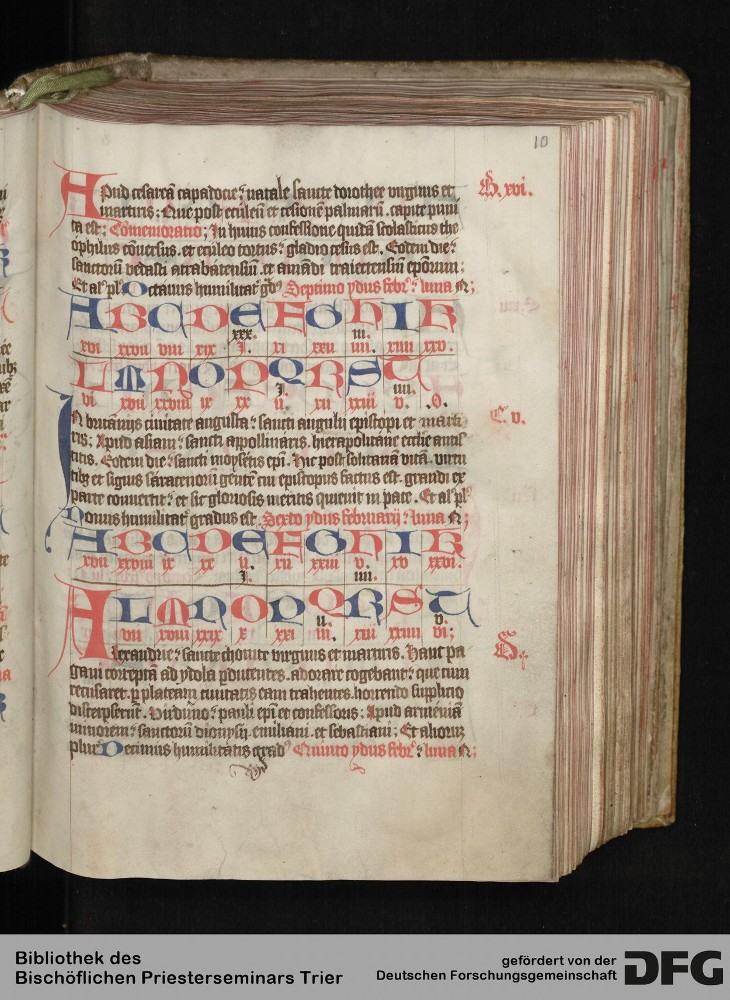 10
Apud cesareā capadocie; natale sancte dorothee virginis et
martiris; Que post eculeū et cesionē palmarū. capite puni
ta est; Cōmemoratio; In huius confessione quidā scolasticus the
ophilus cōuersus. et eculeo tortus; gladio cesus est. Eodem die;
sanctorū vedasti atrabatensiū. et amādi traiectensiū epōrum;
Et al' pl' Octauus humilitat' gᵈ' Septimo ydus febr'; luna
A B C D E F G H I K
xxx. iii.
xvi xxvii viii xix I. xi xxii iiii. xiiii xxv.
L M N O P Q R S T
I. iiii.
vi xvii xxviii ix xx ii. xii xxiii v. .O.
In britanijs ciuitate augusta; sancti angulij episcopi et marti
ris; Apud asiam; sancti appollinaris. hierapolitane ecclie antis
titis. Eodem die; sancti moysetis epī. Hic post solitariā vitā. virtu
tibꝫ et signis saracenorū gentē cui episcopus factus est. grandi ex
parte conuertit; et sic gloriosis meritis quieuit in pace. Et al' pl'
Nonus humilitat' gradus est. Sexto ydus februarij; luna
A B C D E F G H I K
xvii xxviii ix xx ii. xii xxiii v. xv xxvi.
I. iiii.
L M N O P Q R S T
ii. v.
vii xviii xxix x xxi iii. xiii xxiiii vi;
Alexandrie; sancte virginis et martiris. Hanc pa
gani correptā ad ydola pducentes. adorare cogebant; que cum
recusaret. p plateam ciuitatis eam trahentes. horrendo supplicio
discerpserūt. Virduno; pauli epī et confessoris; Apud armeniā
minorem; sanctorū dionysij. emiliani. et sebastiani; Et aliorꝫ
plur' Decimus humilitatis grad' Quinto ydus febr'; luna
B. xvi.
C. v.
Bibliothek des
Bischöflichen Priesterseminars Trier
gefördert von der
Deutschen Forschungsgemeinschaft
DFG